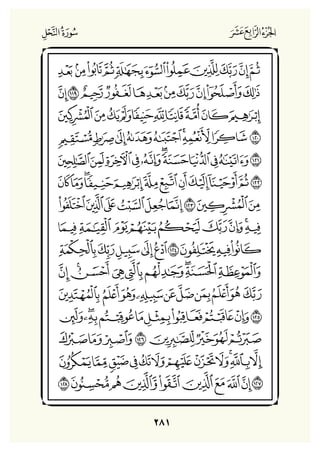 الجُزْءُ الرَّابِعَ عَشَرَ سُورَةُ النَّحْلِ
ثُمَّ إِنَّ رَبَّكَ لِلَّذِينَ عَمِلُوا۟ ٱلسُّوٓءَ بِجَهَٰلَةٍ ثُمَّ تَابُوا۟ مِنۢ بَعْدِ
ذَٰلِكَ وَأَصْلَحُوٓا۟ إِنَّ رَبَّكَ مِنۢ بَعْدِهَا لَغَفُورٌ رَّحِيمٌ ١١٩ إِنَّ
إِبْرَٰهِيمَ كَانَ أُمَّةً قَانِتًا لِّلَّهِ حَنِيفًا وَلَمْ يَكُ مِنَ ٱلْمُشْرِكِينَ
١٢٠ شَاكِرًا لِّأَنْعُمِهِ ٱجْتَبَىٰهُ وَهَدَىٰهُ إِلَىٰ صِرَٰطٍ مُّسْتَقِيمٍ
١٢١ وَءَاتَيْنَٰهُ فِى ٱلدُّنْيَا حَسَنَةً وَإِنَّهُۥ فِى ٱلْءَاخِرَةِ لَمِنَ ٱلصَّٰلِحِينَ
١٢٢ ثُمَّ أَوْحَيْنَآ إِلَيْكَ أَنِ ٱتَّبِعْ مِلَّةَ إِبْرَٰهِيمَ حَنِيفًا وَمَا كَانَ
مِنَ ٱلْمُشْرِكِينَ ١٢٣ إِنَّمَا جُعِلَ ٱلسَّبْتُ عَلَى ٱلَّذِينَ ٱخْتَلَفُوا۟
فِيهِ وَإِنَّ رَبَّكَ لَيَحْكُمُ بَيْنَهُمْ يَوْمَ ٱلْقِيَٰمَةِ فِيمَا
كَانُوا۟ فِيهِ يَخْتَلِفُونَ ١٢٤ ٱدْعُ إِلَىٰ سَبِيلِ رَبِّكَ بِٱلْحِكْمَةِ
وَٱلْمَوْعِظَةِ ٱلْحَسَنَةِ وَجَٰدِلْهُم بِٱلَّتِى هِىَ أَحْسَنُ إِنَّ
رَبَّكَ هُوَ أَعْلَمُ بِمَن ضَلَّ عَن سَبِيلِهِۦ وَهُوَ أَعْلَمُ بِٱلْمُهْتَدِينَ
١٢٥ وَإِنْ عَاقَبْتُمْ فَعَاقِبُوا۟ بِمِثْلِ مَا عُوقِبْتُم بِهِۦ وَلَئِن
صَبَرْتُمْ لَهُوَ خَيْرٌ لِّلصَّٰبِرِينَ ١٢٦ وَٱصْبِرْ وَمَا صَبْرُكَ
إِلَّا بِٱللَّهِ وَلَا تَحْزَنْ عَلَيْهِمْ وَلَا تَكُ فِى ضَيْقٍ مِّمَّا يَمْكُرُونَ
١٢٧ إِنَّ ٱللَّهَ مَعَ ٱلَّذِينَ ٱتَّقَوا۟ وَّٱلَّذِينَ هُم مُّحْسِنُونَ ١٢٨
٢٨١